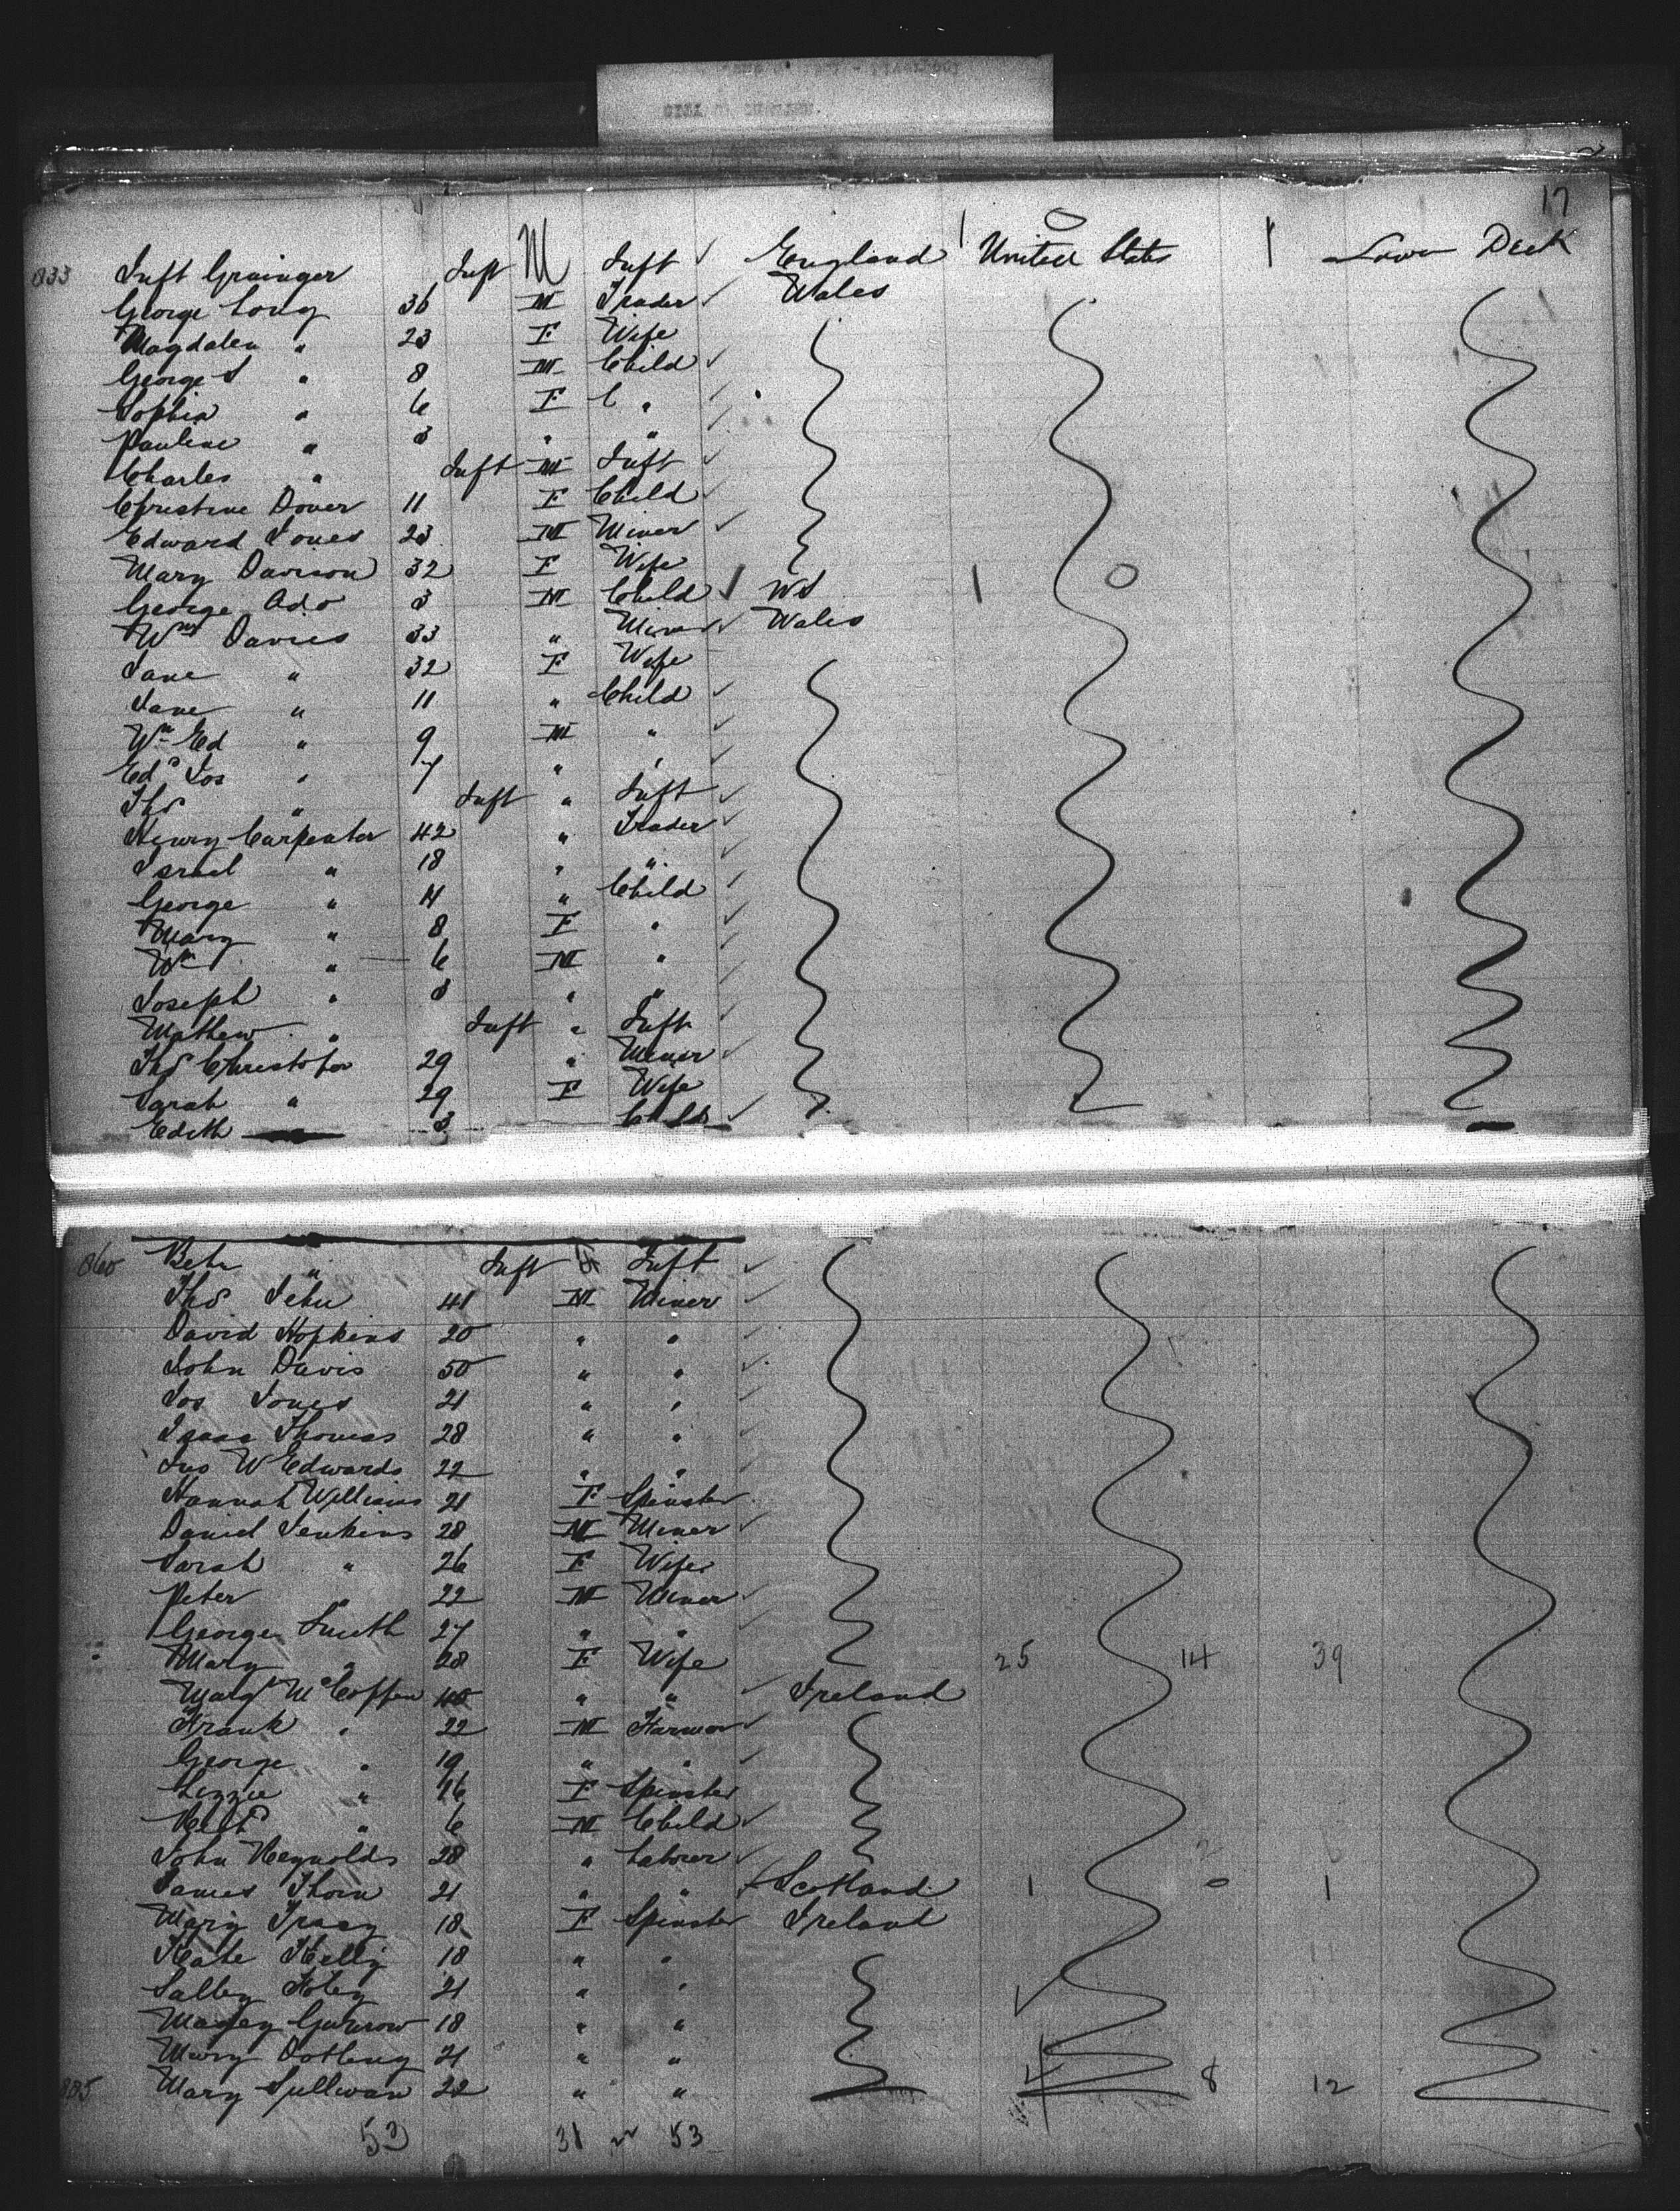 17
833 Inft Grainger Inft M Inft England 1 United States 0 1 Lower Deck
George Long 36 M Trader Wales
Magdalen " 23 F Wife
George S " 8 M Child
Sophia " 6 F C "
Pauline " 3 " "
Charles " Inft M Inft
Christine Dover 11 F Child
Edward Jones 23 M Miner
Mary Davison 32 F Wife
George Ado 3 M Child WS 1 0
Wm Davies 33 " Miner Wales
Jane " 32 F Wife
Jane " 11 " Child
Wm Ed " 9 M "
Edd Jos " 7 " "
Thos " Inft " Inft
Henry Carpenter 42 " Trader
Israel " 18 " "
George " 11 " Child
Mary " 8 F "
Wm " 6 M "
Joseph " 3 " "
Mathew " Inft " Inft
Thos Christopher 29 " Miner
Sarah " 29 F Wife
Edith 3 Child
860 " Inft F Inft
Thos Jehu 41 M Miner
David Hopkins 20 " "
John Davis 50 " "
Jos Jones 21 " "
Isaac Thomas 28 " "
Jno W Edwards 22 " "
Hannah Williams 21 F Spinster
Daniel Jenkins 28 M Miner
Sarah " 26 F Wife
Peter " 22 M Miner
George Smith 27 " "
Mary " 28 F Wife 25 14 39
Margt McCoffen 40 " " Ireland
Frank " 22 M Farmer
George " 19 " "
Lizzie " 16 F Spinster
Robt " 6 M Child
John Reynolds 28 " Laborer
James Thorn 21 " " Scotland 1 0 1
Mary Tracy 18 F Spinster Ireland
Kate Kelly 18 " "
Salley Foley 21 " "
Maggey Gurrow 18 " "
Mary 21 " "
885 Mary Sullivan 22 " " 4 8 12
53 31 22 53